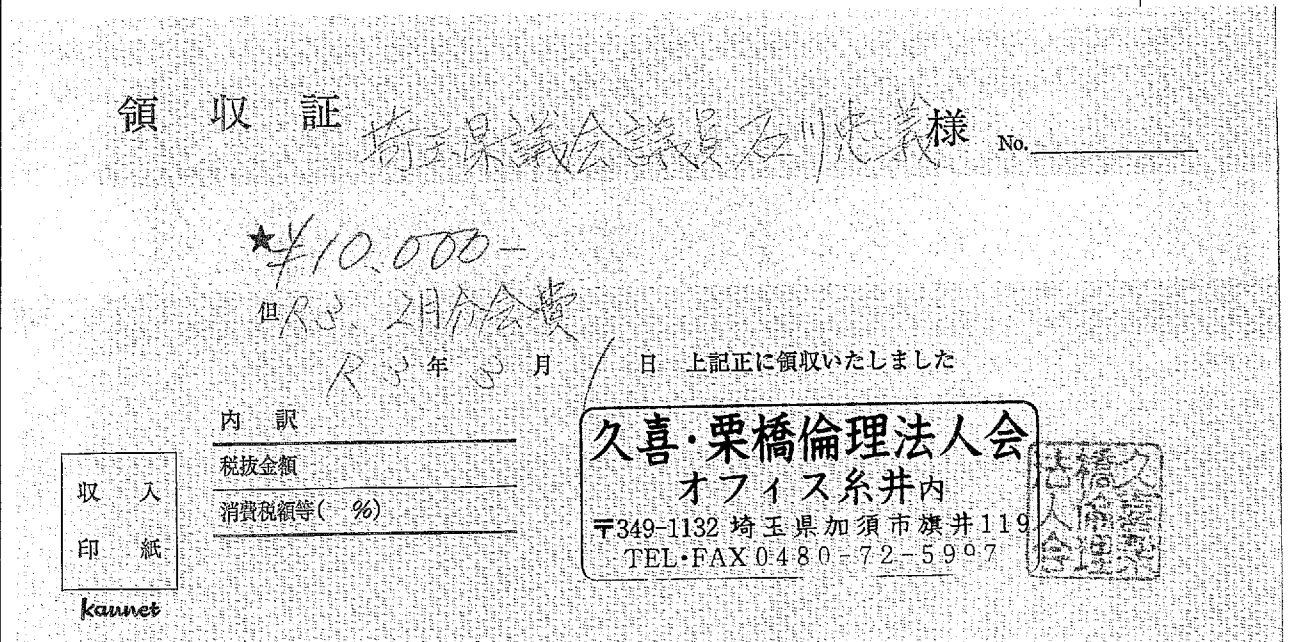 領収証 埼玉県議会議員石川忠義様 No.
★¥10.000-
但R3. 2月分会費
R3年3月1日 上記正に領収いたしました
内訳
税抜金額
消費税額等( %)
収入
印紙
kaunet
久喜・栗橋倫理法人会
オフィス糸井内
〒349-1132 埼玉県加須市旗井119
TEL・FAX0480-72-5907
久喜栗
橋倫理
法人会